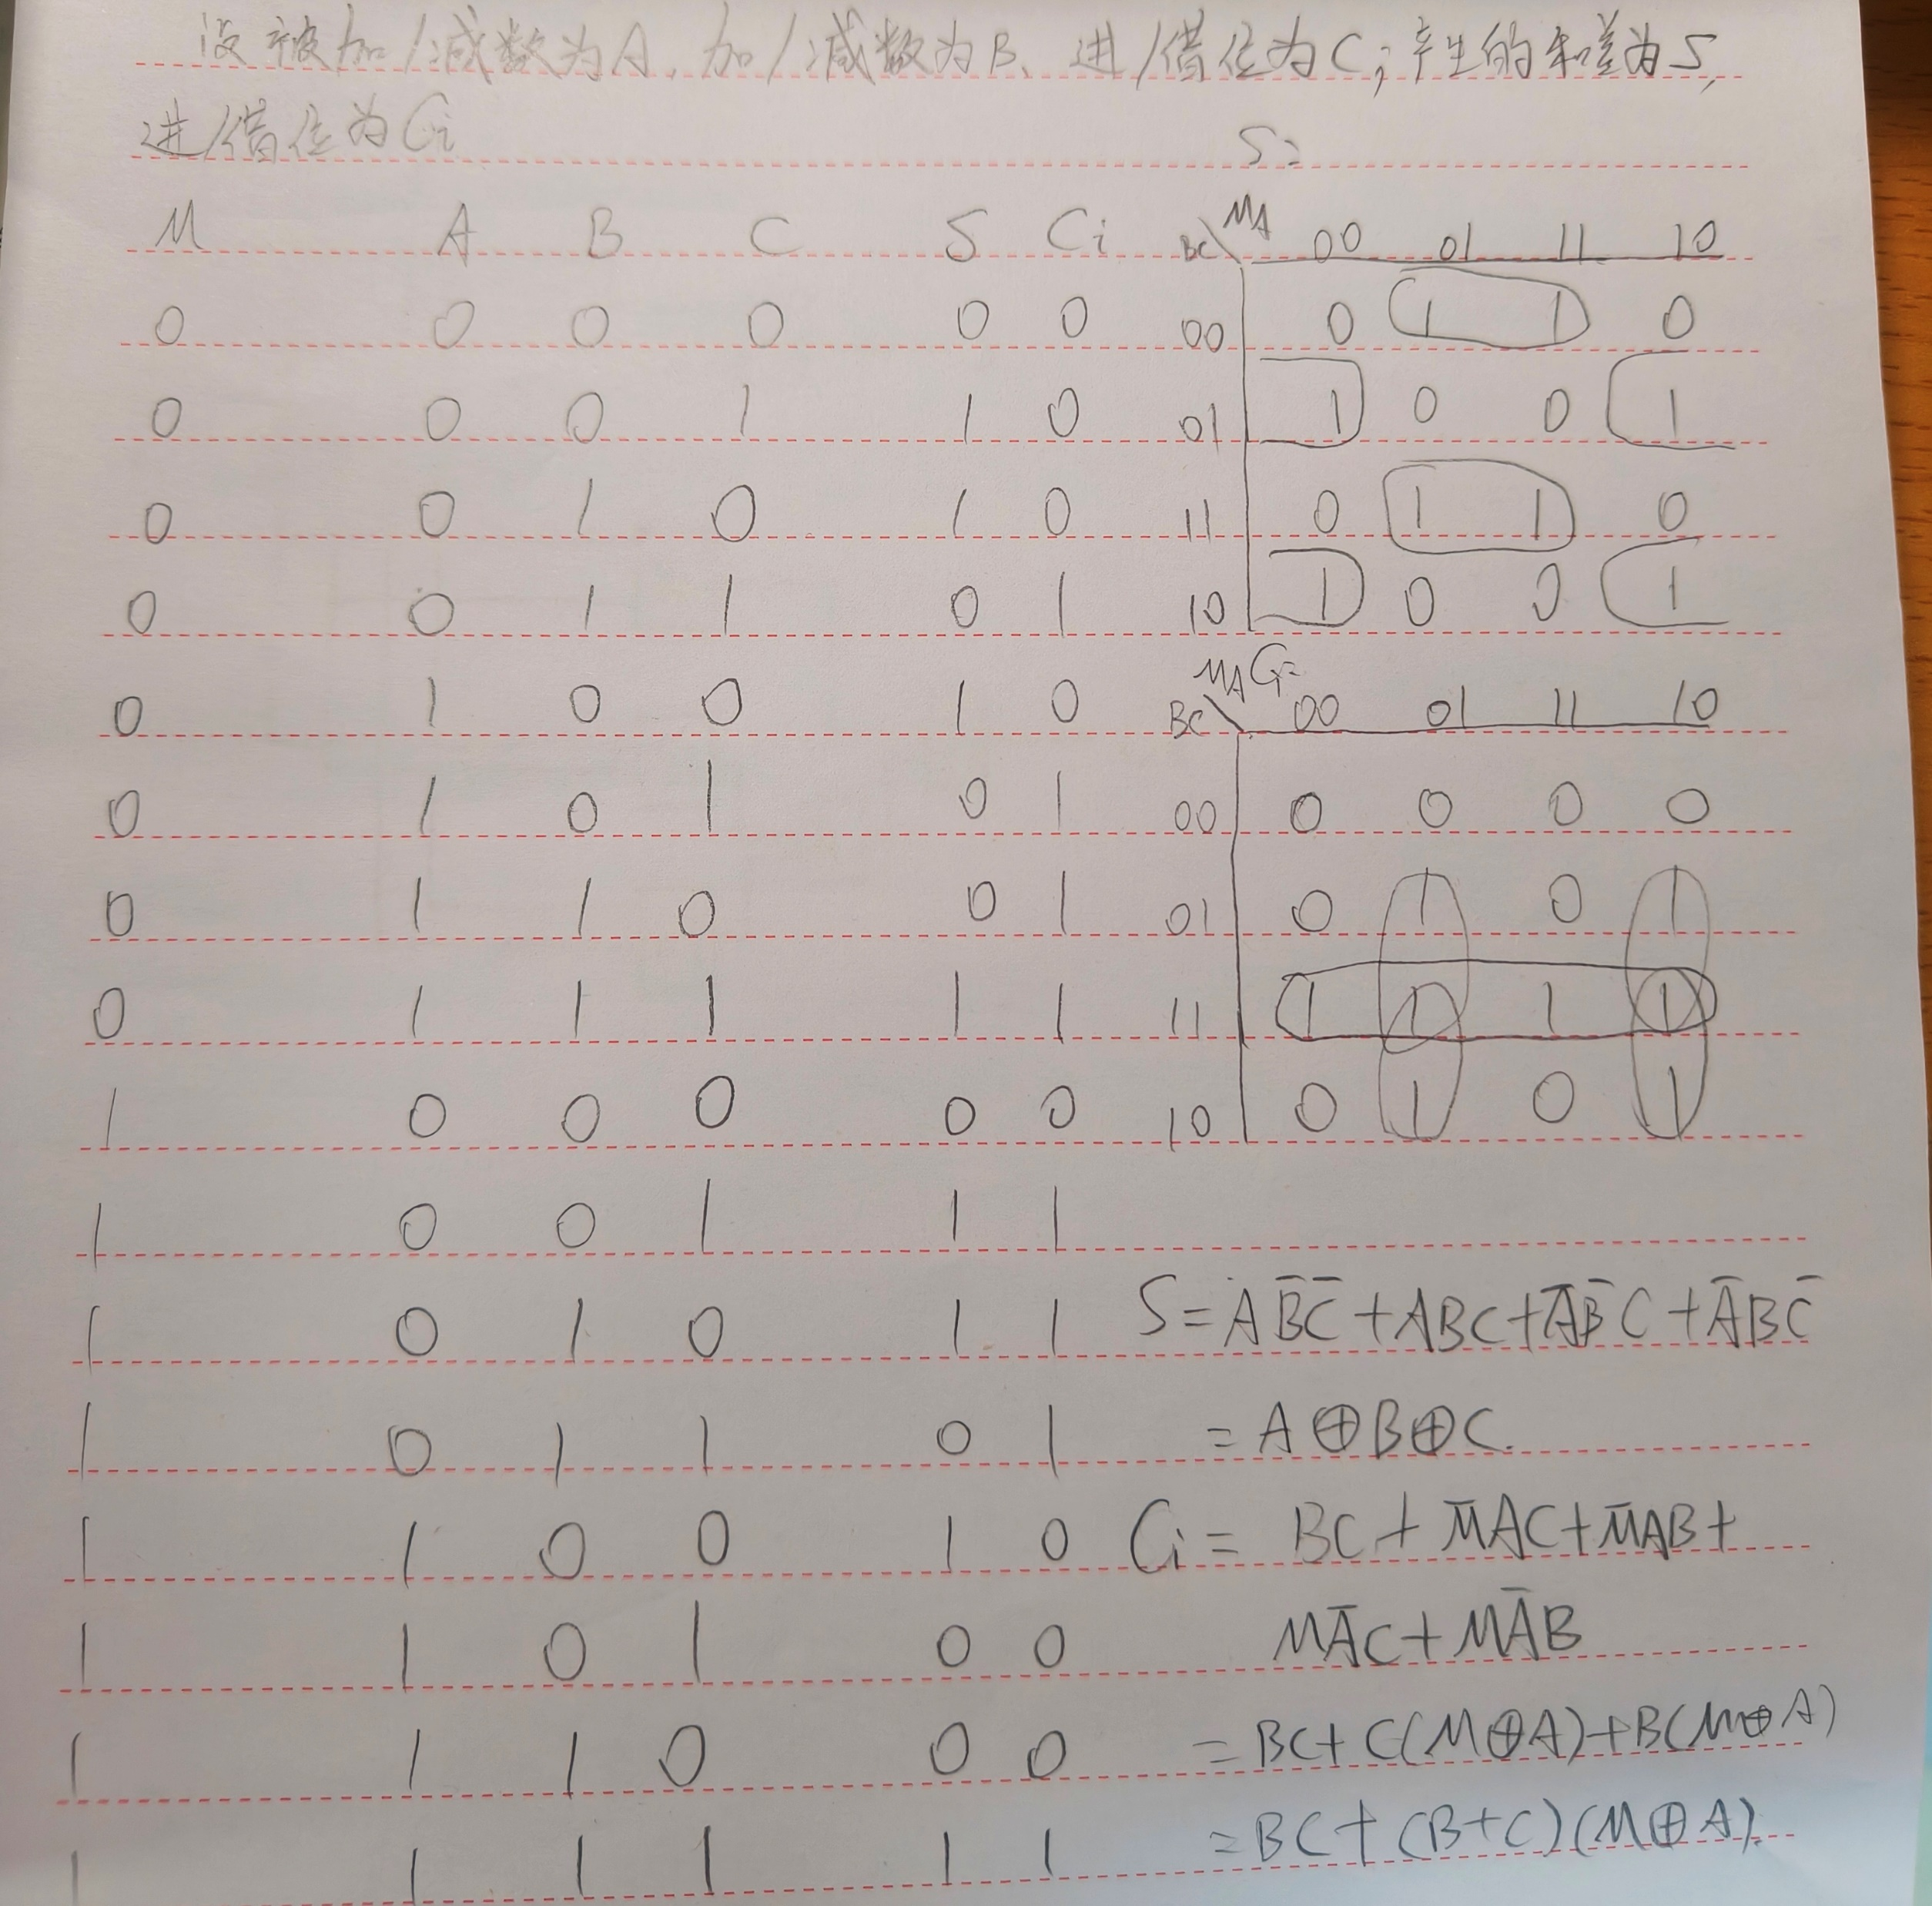 设被加/减数为A、加/减数为B、进/借位为C;产生的和差为S,
进/借位为Ci
S=
M A B C S Ci
0 0 0 0 0 0
0 0 0 1 1 0
0 0 1 0 1 0
0 0 1 1 0 1
0 1 0 0 1 0
0 1 0 1 0 1
0 1 1 0 0 1
0 1 1 1 1 1
1 0 0 0 0 0
1 0 0 1 1 1
1 0 1 0 1 1
1 0 1 1 0 1
1 1 0 0 1 0
1 1 0 1 0 0
1 1 1 0 0 0
1 1 1 1 1 1
BC\MA 00 01 11 10
00 0 1 1 0
01 1 0 0 1
11 0 1 1 0
10 1 0 0 1
Ci=
BC\MA 00 01 11 10
00 0 0 0 0
01 0 1 0 1
11 1 1 1 1
10 0 1 0 1
S=AB̅C̅+ABC+A̅B̅C+A̅BC̅
=A⊕B⊕C.
Ci= BC+M̅AC+M̅AB+
MA̅C+MA̅B
=BC+C(M⊕A)+B(M⊕A)
=BC+(B+C)(M⊕A).